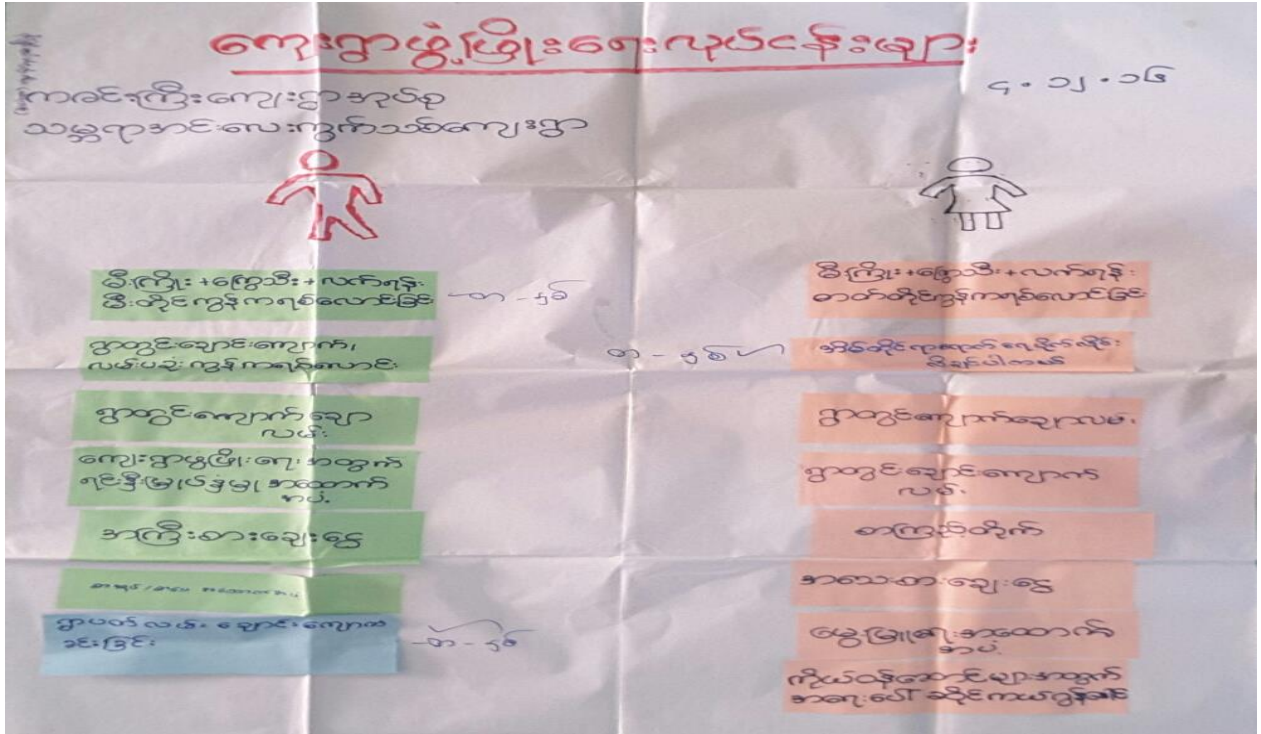 ကျေးရွာဖွံ့ဖြိုးရေးလုပ်ငန်းများ
၄.၁၂.၁၆
ကခင်းကြီးကျေးရွာအုပ်စု
သမ္ဘရာအင်းလေးကွက်သစ်ကျေးရွာ
မီးကြိုး+ကြွေသီး+လက်ရန်း
မီးတိုင်ကွန်ကရစ်လောင်းခြင်း
ရွာတွင်းချောင်းကျောက်၊
လမ်းပခုံး ကွန်ကရစ်လောင်း
ရွာတွင်းကျောက်ချော
လမ်း
ကျေးရွာဖွံ့ဖြိုးရေးအတွက်
ရင်းနှီးမြှုပ်နှံမှု အထောက်
အပံ့
အကြီးစားချေးငွေ
ရွာပတ်လမ်း ချောင်းကျောက်
ခင်းခြင်း
မီးကြိုး+ကြွေသီး+လက်ရန်း
ဓာတ်တိုင်ကွန်ကရစ်လောင်းခြင်း
အိမ်တိုင်ရာရောက် ရေပိုက်လိုင်း
ရွာတွင်းကျောက်ချောလမ်း
ရွာတွင်းချောင်းကျောက်
လမ်း
စာကြည့်တိုက်
အသေးစားချေးငွေ
မွေးမြူရေးအထောက်
အပံ့
ကိုယ်ဝန်ဆောင်များအတွက်
အရေးပေါ်